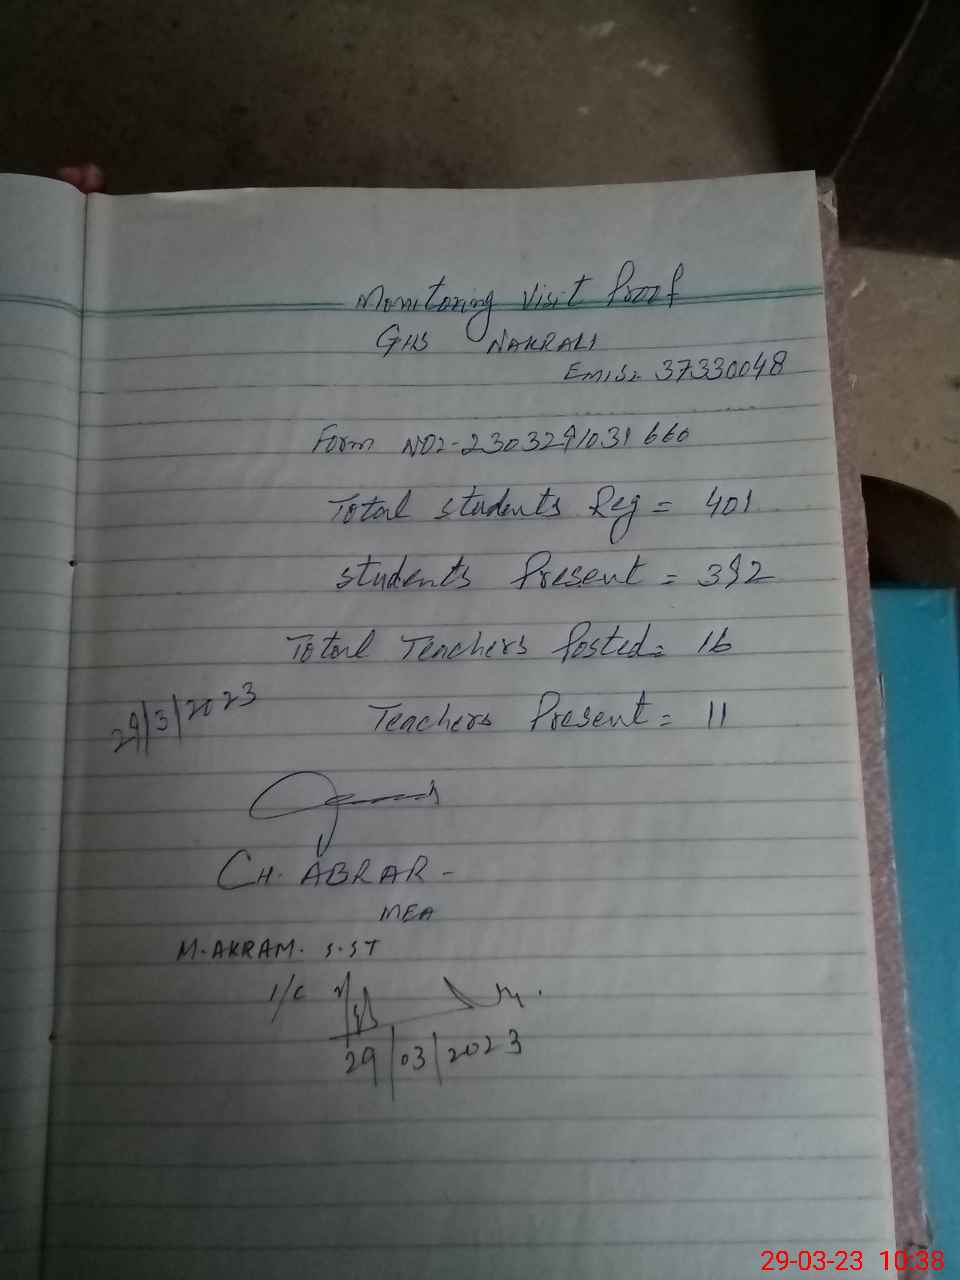 Monitoring Visit Proof
GHS NAKRALI
EMIS: 37330048
Form NO: - 2303291031660
Total students Reg = 401
students Present = 392
Total Teachers Posted = 16
29/3/2023
Teachers Present = 11
CH. ABRAR -
MEA
M. AKRAM. S.ST
I/C
29/03/2023
29-03-23 10:38